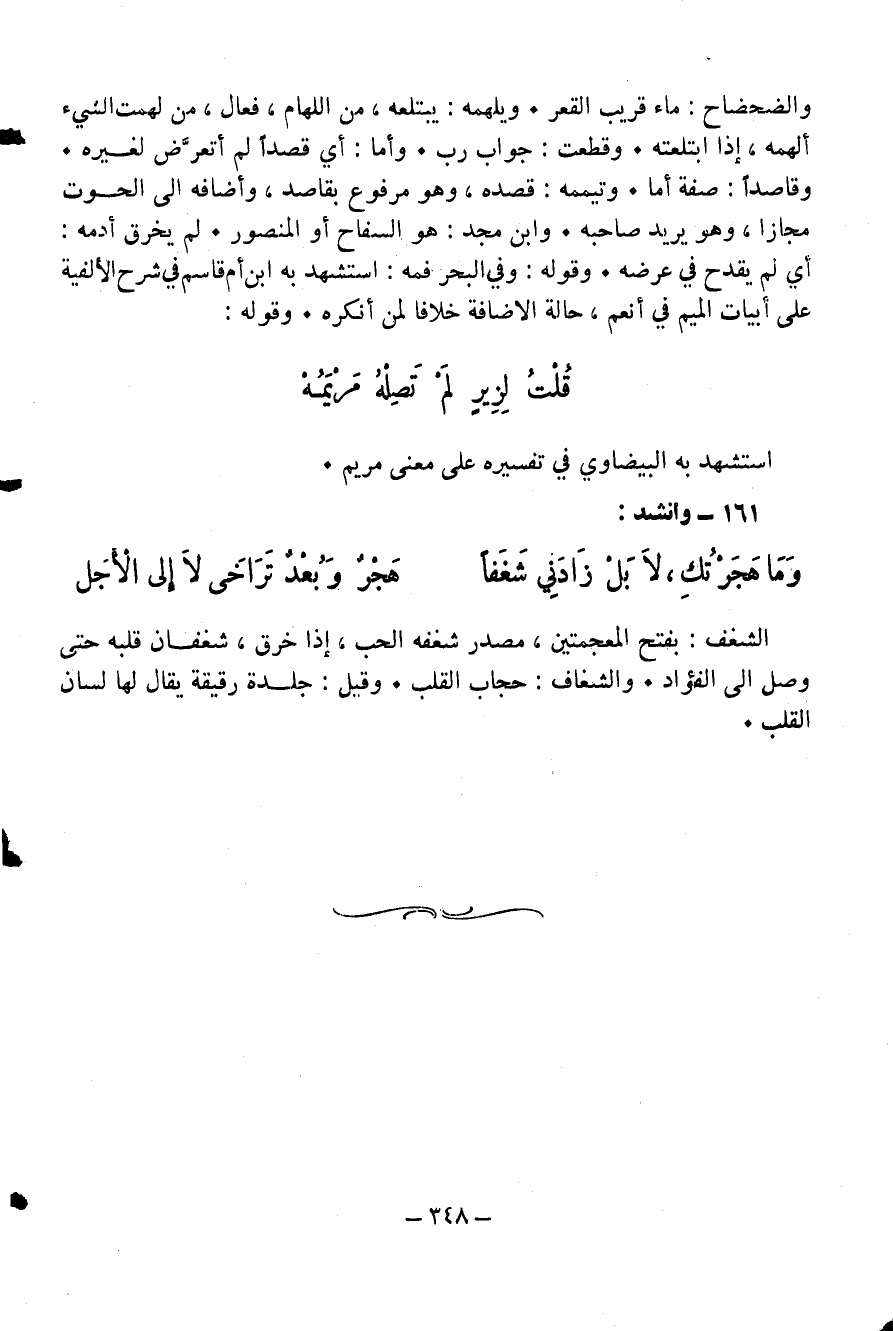 والضحضاح : ماء قريب القعر • ويلهمه : يبتلعه ، من اللهام ، فعال ، من لهمت الشيء
ألهمه ، إذا ابتلعته • وقطعت : جواب رب • وأما : أي قصداً لم أتعرَّض لغيره •
وقاصداً : صفة أما • وتيممه : قصده ، وهو مرفوع بقاصد ، وأضافه الى الحوت
مجازا ، وهو يريد صاحبه • وابن مجد : هو السفاح أو المنصور • لم يخرق أدمه :
أي لم يقدح في عرضه • وقوله : وفي البحر فمه : استشهد به ابن أم قاسم في شرح الألفية
على أبيات الميم في أنعم ، حالة الاضافة خلافا لمن أنكره • وقوله :
قُلْتُ لِزِيرٍ لَمْ تَصِلْهُ مَرْيَمُهْ
استشهد به البيضاوي في تفسيره على معنى مريم •
١٦١ – وانشد :
وَمَا هَجَرْتُكِ، لاَ بَلْ زَادَنِي شَغَفاً هَجْرٌ وَبُعْدٌ تَرَاخَى لاَ إلى الْأَجَل
الشغف : بفتح المعجمتين ، مصدر شغفه الحب ، إذا خرق ، شغفان قلبه حتى
وصل الى الفؤاد • والشغاف : حجاب القلب • وقيل : جلدة رقيقة يقال لها لسان
القلب •
– ٣٤٨ –